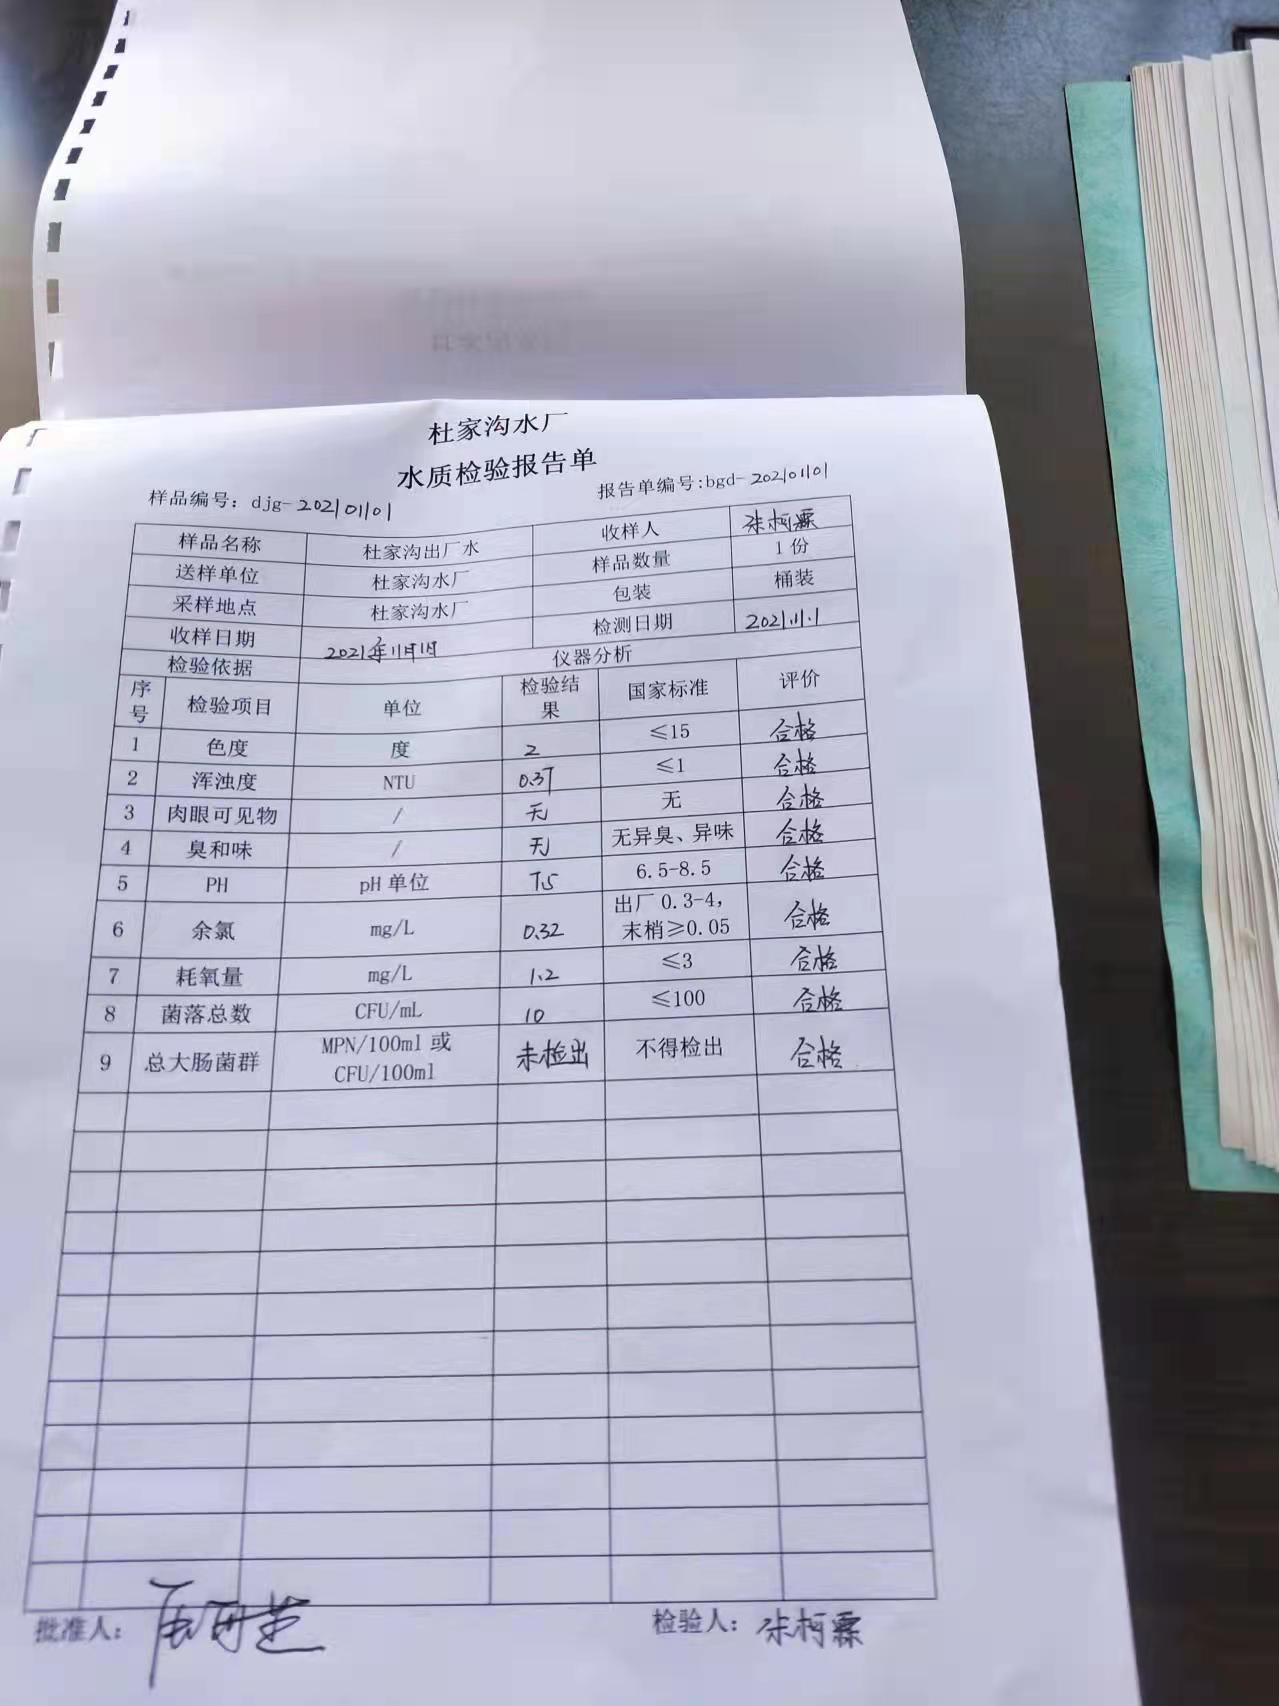 杜家沟水厂
水质检验报告单
样品编号：djg-20210101 报告单编号:bgd-20210101
样品名称 杜家沟出厂水 收样人 张柯霖
送样单位 杜家沟水厂 样品数量 1份
采样地点 杜家沟水厂 包装 桶装
收样日期 2021年11月1日 检测日期 2021.11.1
检验依据 仪器分析
序号 检验项目 单位 检验结果 国家标准 评价
1 色度 度 2 ≤15 合格
2 浑浊度 NTU 0.37 ≤1 合格
3 肉眼可见物 / 无 无 合格
4 臭和味 / 无 无异臭、异味 合格
5 PH pH单位 7.5 6.5-8.5 合格
6 余氯 mg/L 0.32 出厂0.3-4，末梢≥0.05 合格
7 耗氧量 mg/L 1.2 ≤3 合格
8 菌落总数 CFU/mL 10 ≤100 合格
9 总大肠菌群 MPN/100ml或CFU/100ml 未检出 不得检出 合格
批准人： 检验人：张柯霖